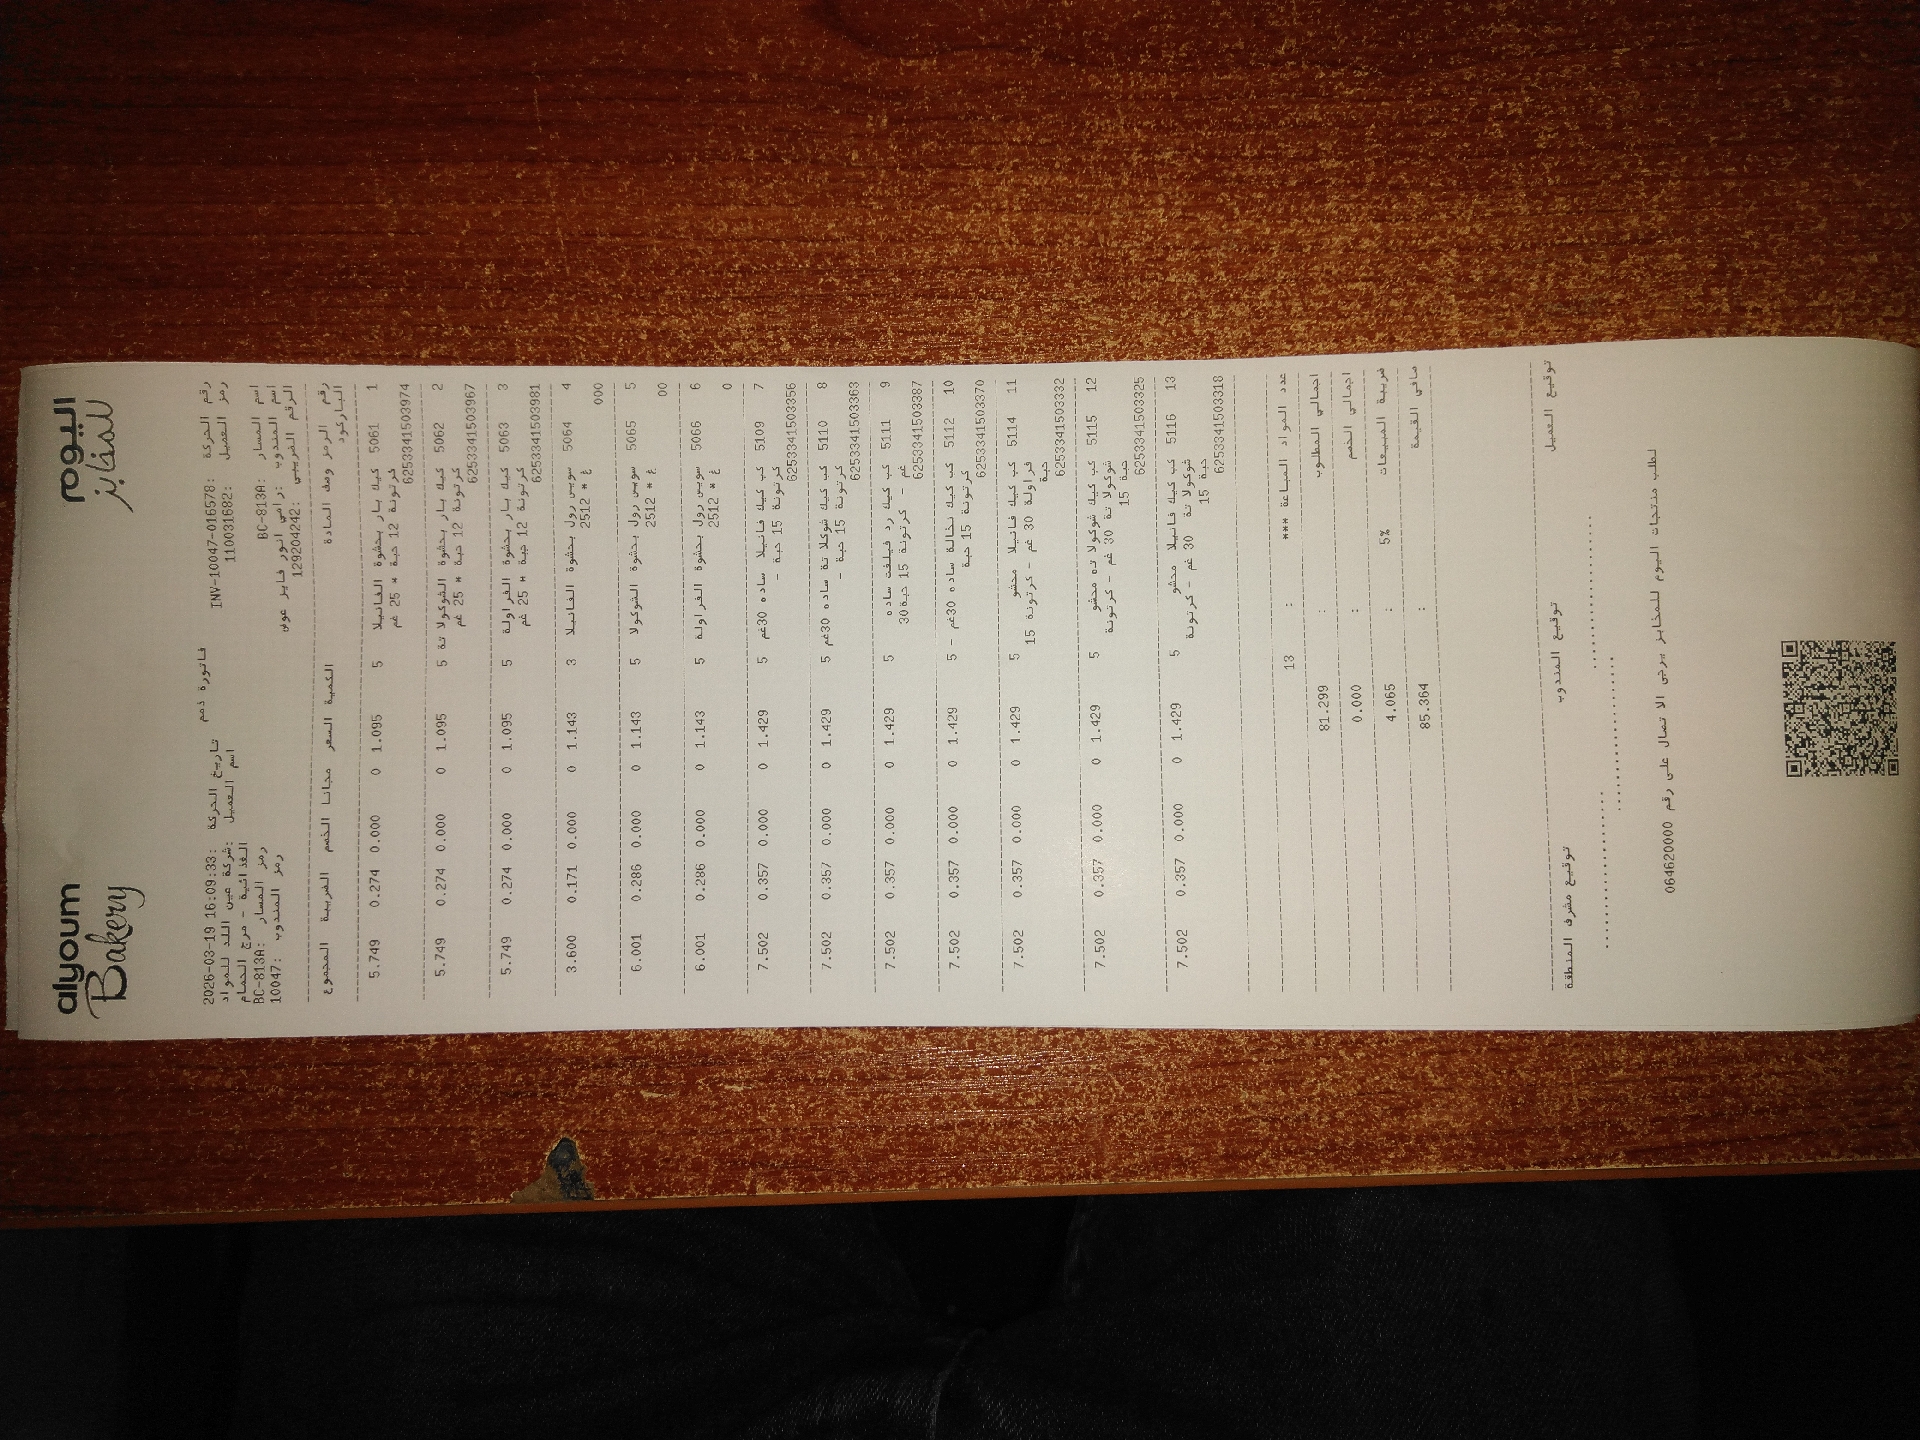 اليوم للمخابز
alyoum Bakery
رقم الحركة :INV-10047-016578 فاتورة ذمم تاريخ الحركة :2026-03-19 16:09:33
رمز العميل :110031682 اسم العميل :شركة عين اللذ للمواد
الغذائية - مرج الحمام
اسم المسار :BC-813A رمز المسار :BC-813A
اسم المندوب :رامي انور فايز عوض رمز المندوب :10047
الرقم الضريبي :129204242
رقم الرمز وصف المادة الكمية السعر مجانا الخصم الضريبة المجموع
الباركود
1 5061 كيك بار بحشوة الفانيلا 5 1.095 0 0.000 0.274 5.749
كرتونة 12 حبة * 25 غم
6253341503974
2 5062 كيك بار بحشوة الشوكولاتة 5 1.095 0 0.000 0.274 5.749
كرتونة 12 حبة * 25 غم
6253341503967
3 5063 كيك بار بحشوة الفراولة 5 1.095 0 0.000 0.274 5.749
كرتونة 12 حبة * 25 غم
6253341503981
4 5064 سويس رول بحشوة الفانيلا 3 1.143 0 0.000 0.171 3.600
2512 * غ
000
5 5065 سويس رول بحشوة الشوكولا 5 1.143 0 0.000 0.286 6.001
2512 * غ
00
6 5066 سويس رول بحشوة الفراولة 5 1.143 0 0.000 0.286 6.001
2512 * غ
0
7 5109 كب كيك فانيلا ساده 30غم 5 1.429 0 0.000 0.357 7.502
كرتونة 15 حبة -
6253341503356
8 5110 كب كيك شوكلاتة ساده 30غم 5 1.429 0 0.000 0.357 7.502
كرتونة 15 حبة -
6253341503363
9 5111 كب كيك رد فيلفت ساده 5 1.429 0 0.000 0.357 7.502
غم - كرتونة 15 حبة30
6253341503387
10 5112 كب كيك نخالة ساده 30غم - 5 1.429 0 0.000 0.357 7.502
كرتونة 15 حبة
6253341503370
11 5114 كب كيك فانيلا محشو 5 1.429 0 0.000 0.357 7.502
فراولة 30 غم - كرتونة 15
حبة
6253341503332
12 5115 كب كيك شوكولاته محشو 5 1.429 0 0.000 0.357 7.502
شوكولاتة 30 غم - كرتونة
15 حبة
6253341503325
13 5116 كب كيك فانيلا محشو 5 1.429 0 0.000 0.357 7.502
شوكولاتة 30 غم - كرتونة
15 حبة
6253341503318
عدد المواد المباعة *** : 13
اجمالي المطلوب : 81.299
اجمالي الخصم : 0.000
ضريبة المبيعات 5% : 4.065
صافي القيمة : 85.364
توقيع العميل توقيع المندوب توقيع مشرف المنطقة
لطلب منتجات اليوم للمخابز يرجى الاتصال على رقم 064620000